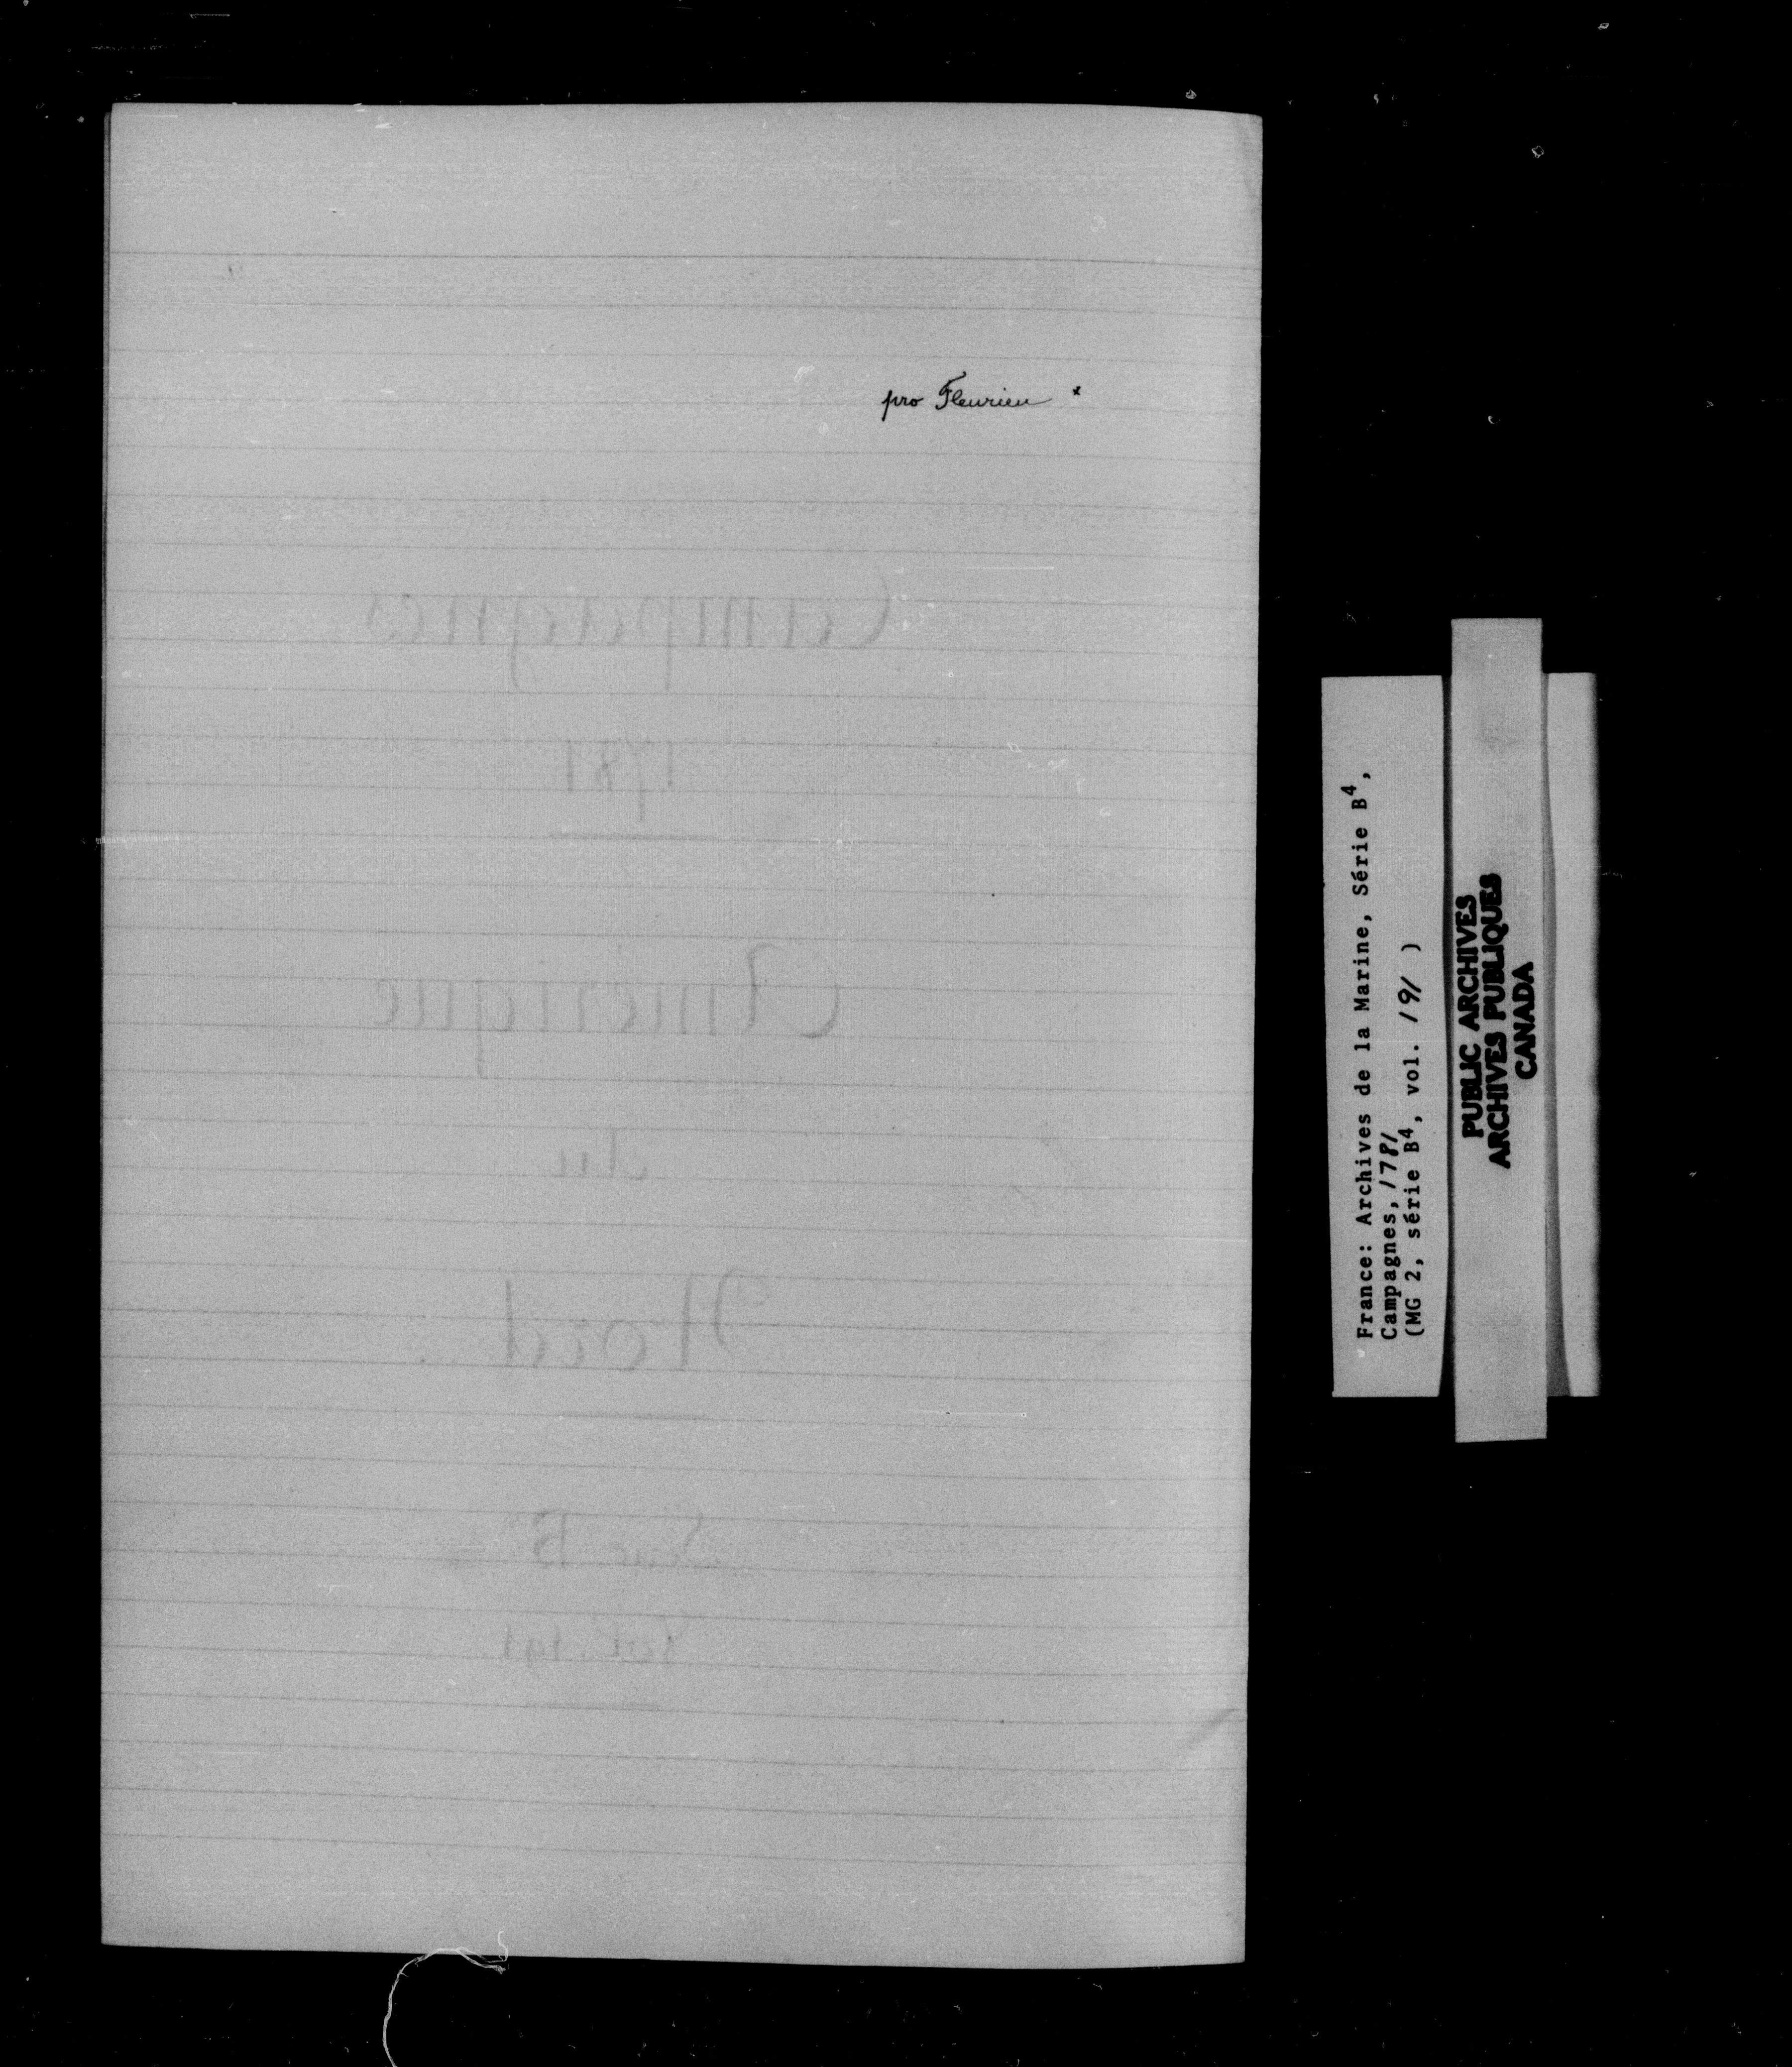 pro Fleurieu *
Campagnes
1781
Amérique
du
Nord
Série B⁴
Vol. 191
France: Archives de la Marine, Série B⁴,
Campagnes, 1781
(MG 2, série B⁴, vol. 191 )
PUBLIC ARCHIVES
ARCHIVES PUBLIQUES
CANADA